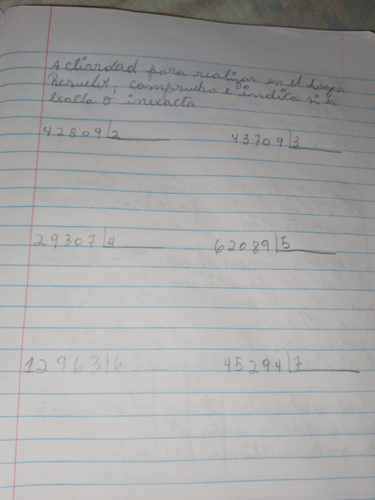 Actividad para realizar en el hogar
Resuelve, comprueba e indica si es
exacta o inexacta
42809|2 43709|3
29307|4 62089|5
12963|6 45294|7